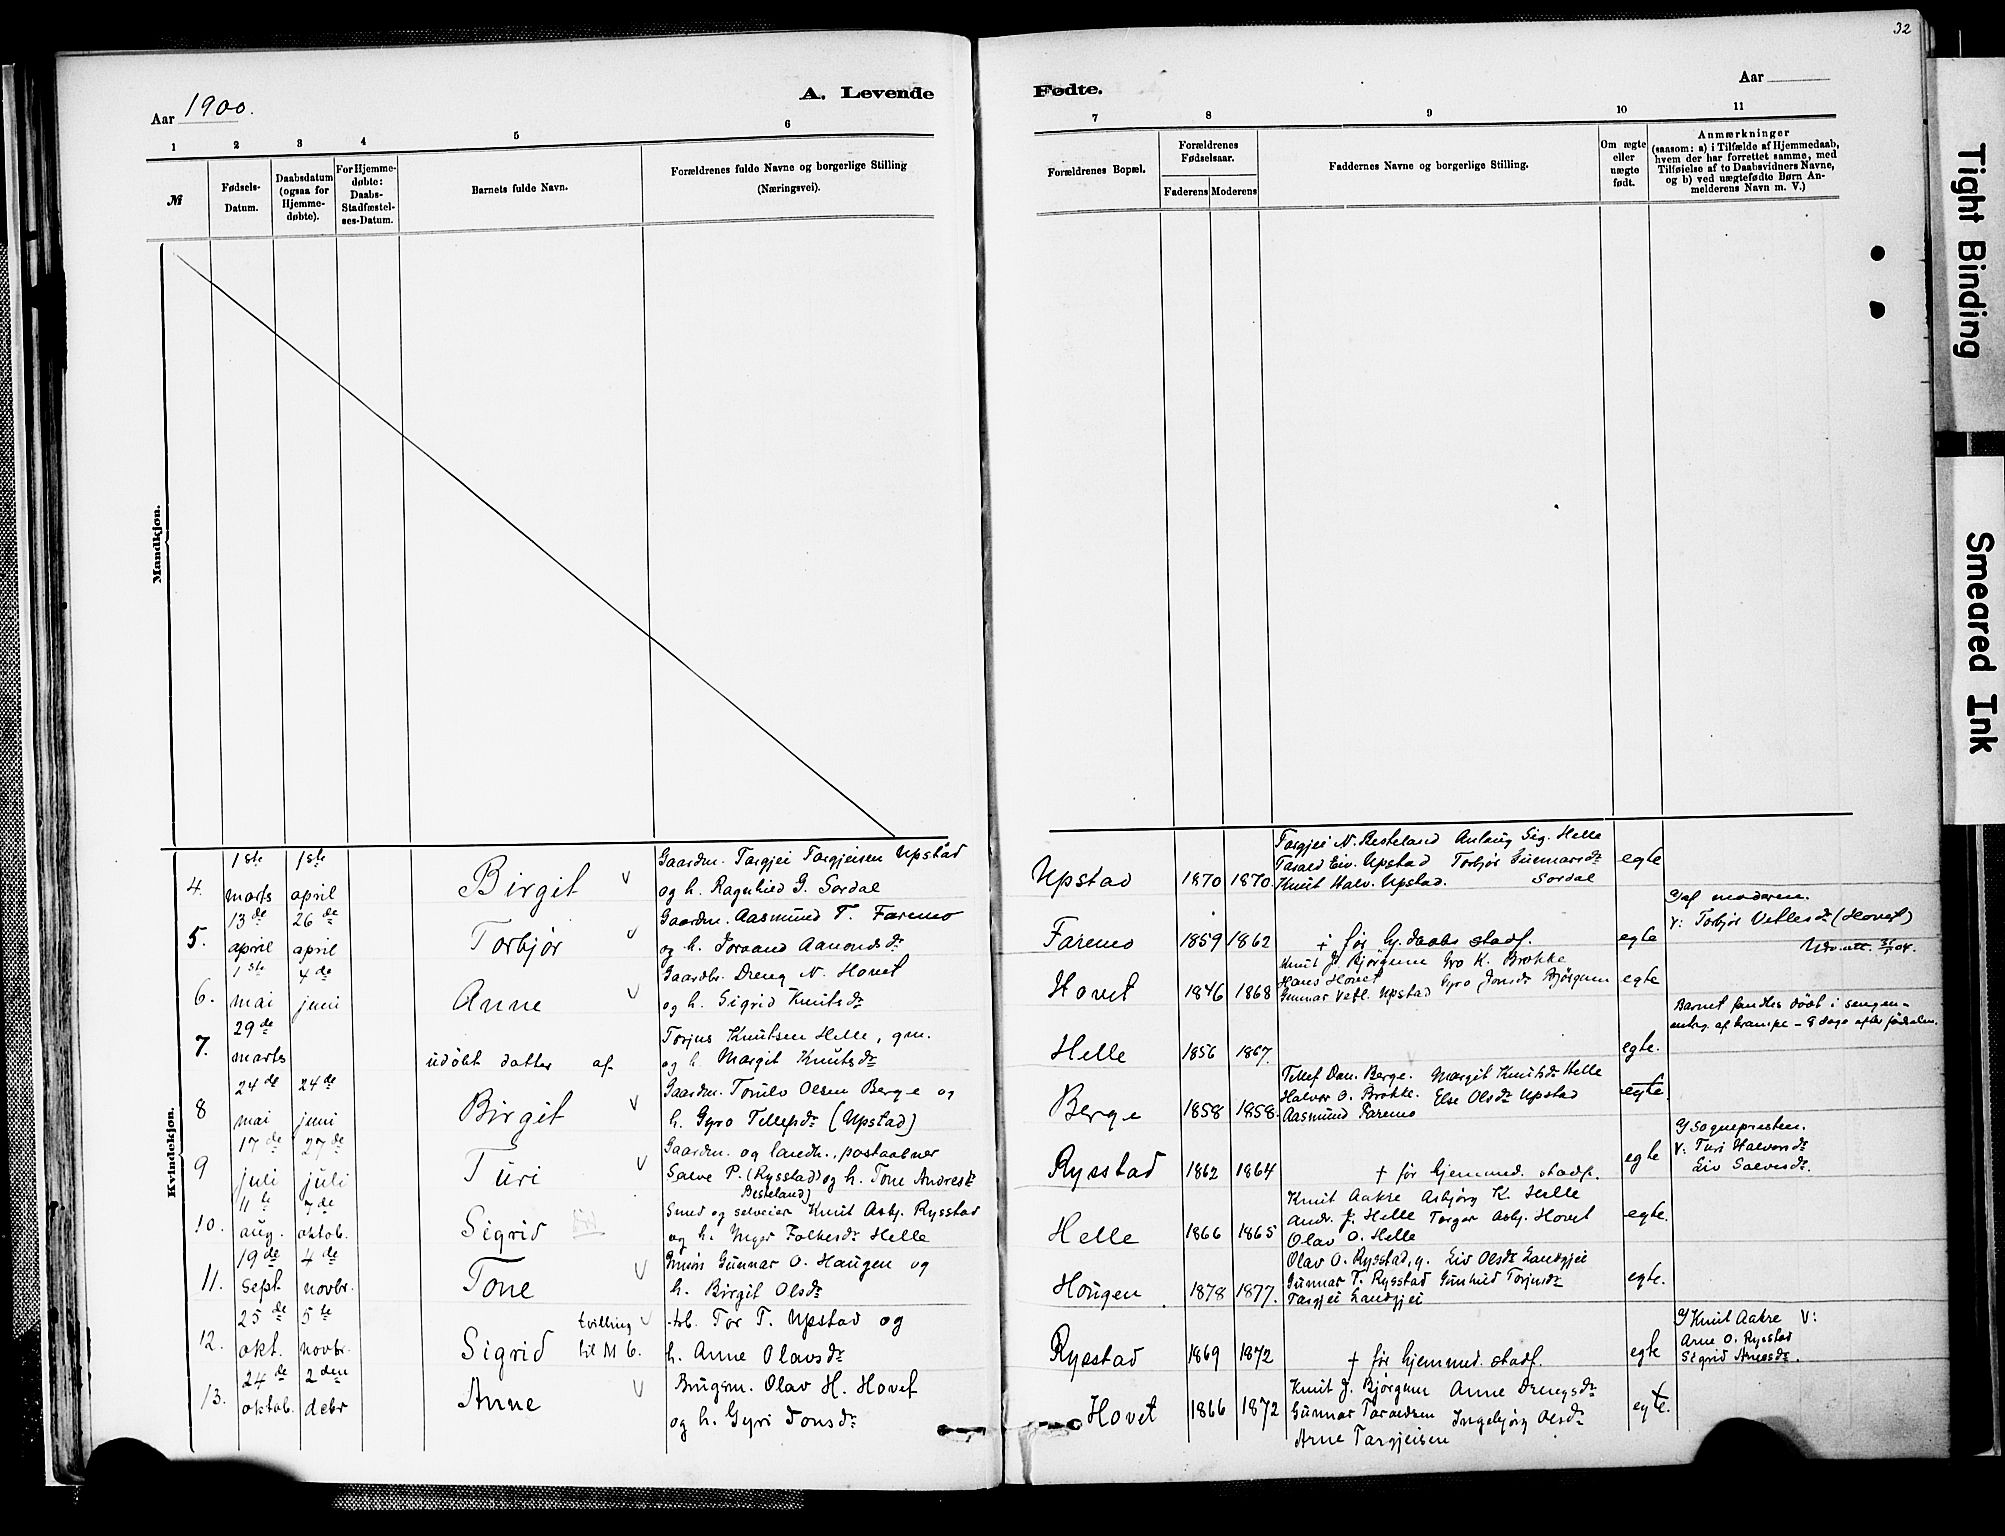 32
Aar 1900.
A. Levende
Fødte.
Aar
1 2 3 4 5 6 7 8 9 10 11
№
Fødsels-
Datum.
Daabsdatum
(ogsaa for
Hjemme-
døbte).
For Hjemme-
døbte:
Daabs-
Stadfæstel-
ses-Datum.
Barnets fulde Navn.
Forældrenes fulde Navne og borgerlige Stilling
(Næringsvei).
Forældrenes Bopæl.
Forældrenes
Fødselsaar.
Faderens Moderens
Faddernes Navne og borgerlige Stilling.
Om ægte
eller
uægte
født.
Anmærkninger
(saasom: a) i Tilfælde af Hjemmedaab,
hvem der har forrettet samme, med
Tilføielse af to Daabsvidners Navne,
og b) ved uægtefødte Børn An-
melderens Navn m. V.)
Mandkjøn.
Kvindekjøn.
4.
1ste
marts
1ste
april
Birgit v
Gaardm. Targjei Targjeisen Upstad
og h. Ragnhild G. Sordal
Upstad
1870 1870.
Targjei N. Besteland Anlaug Sig. Helle
Tarald Eiv. Upstad Torbjør Gunnarsdr
Knut Halv. Upstad. Sordal
egte
5.
13de
april
26de
april
Torbjør v
Gaardm. Aasmund T. Faremo
og h. Joraand Aanondsdr
Faremo
1859 1862
+ før hj.daabs stadf.
egte
af moderen.
v: Torbjør Vetlesdr (Hovet)
6.
1ste
mai
4de
juni
Anne v
Gaardbr. Dreng N. Hovet
og h. Sigrid Knutsdr
Hovet
1846 1868
Knut J. Bjørgum Gro K. Brokke
Hans Hovet
Gunnar Vetl. Upstad Gyro Jonsdr Bjørgum
egte
7.
29de
marts
udøbt datter af
Torjus Knutsen Helle, gm.
og h. Margit Knutsdr
Helle
1856 1867.
egte.
Barnet fandtes dødt i sengen -
antag. af krampe - 8 dage efter fødselen.
8
24de
mai
24de
juni
Birgit v
Gaardm. Tomlo Olsen Berge og
h. Gyro Tellefsdr (Upstad)
Berge
1858 1858.
Tellef Dan. Berge. Margit Knutsdr Helle
Halvor O. Brokke. Else Olsdr Upstad
Aasmund Faremo
egte.
9
17de
juli
27de
juli
Turi v
Gaardm. og landh., postaabner
Salve P. (Rysstad) og h. Tone Andresdr
Besteland)
Rysstad
1862 1864
+ før hjemmed. stadf.
egte
Sognepresten.
v: Turi Halvorsdr
Liv Salvesdr.
10.
11te
aug.
7de
oktob.
Sigrid
Smed og selveier Knut Asbj. Rysstad
og h. Inger Folkesdr Helle
Helle
1866 1865
Knut Aakre Asbjørg K. Helle
Andr. J. Helle Torger Asbj. Hovet
Olav O. Helle
egte.
11.
19de
sept.
4de
novbr.
Tone v
Gunnar O. Haugen og
h. Birgit Olsdr
Hougen
1878 1877.
Olav O. Rysstad, g. Liv Olsdr Landgjei
Gunnar T. Rysstad Gunhild Torjusdr
Targjei Landgjei
egte.
12.
25de
okt.
5te
novbr.
Sigrid
tvilling v
til M 6.
Tor T. Upstad og
h. Anne Olavsdr
Rysstad
1869 1872
+ før hjemmed. stadf.
egte
Knut Aakre v:
Arne O. Rysstad
Sigrid Arnesdr.
13.
24de
oktob.
2den
debr
Anne v
Brugsm. Olav H. Hovet
og h. Gyri Jonsdr
Hovet
1866 1872
Knut J. Bjørgum Anne Drengsdr
Gunnar Taraldsen Ingebjørg Olsdr
Arne Targjeisen
egte.
Tight Binding
Smeared Ink